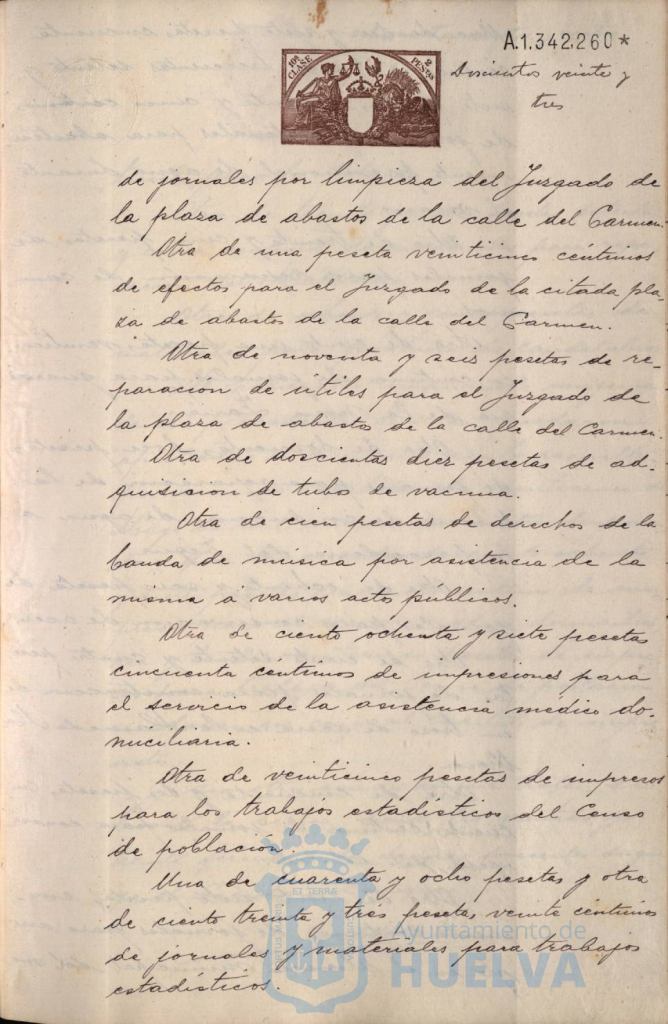 A.1.342.260*
10ª CLASE
2 PESETAS
Doscientos veinte y
tres
de jornales por limpieza del Juzgado de
la plaza de abastos de la calle del Carmen.
Otra de una peseta veinticinco céntimos
de efectos para el Juzgado de la citada pla-
za de abastos de la calle del Carmen.
Otra de noventa y seis pesetas de re-
paración de útiles para el Juzgado de
la plaza de abastos de la calle del Carmen.
Otra de doscientas diez pesetas de ad-
quisicion de tubos de vacuna.
Otra de cien pesetas de derechos de la
banda de música por asistencia de la
misma á varios actos públicos.
Otra de ciento ochenta y siete pesetas
cincuenta céntimos de impresiones para
el servicio de la asistencia médico do-
miciliaria.
Otra de veinticinco pesetas de impresos
para los trabajos estadísticos del Censo
de población.
Una de cuarenta y ocho pesetas y otra
de ciento treinta y tres pesetas veinte céntimos
de jornales y materiales para trabajos
estadísticos.
ET TERRA
Ayuntamiento de
HUELVA